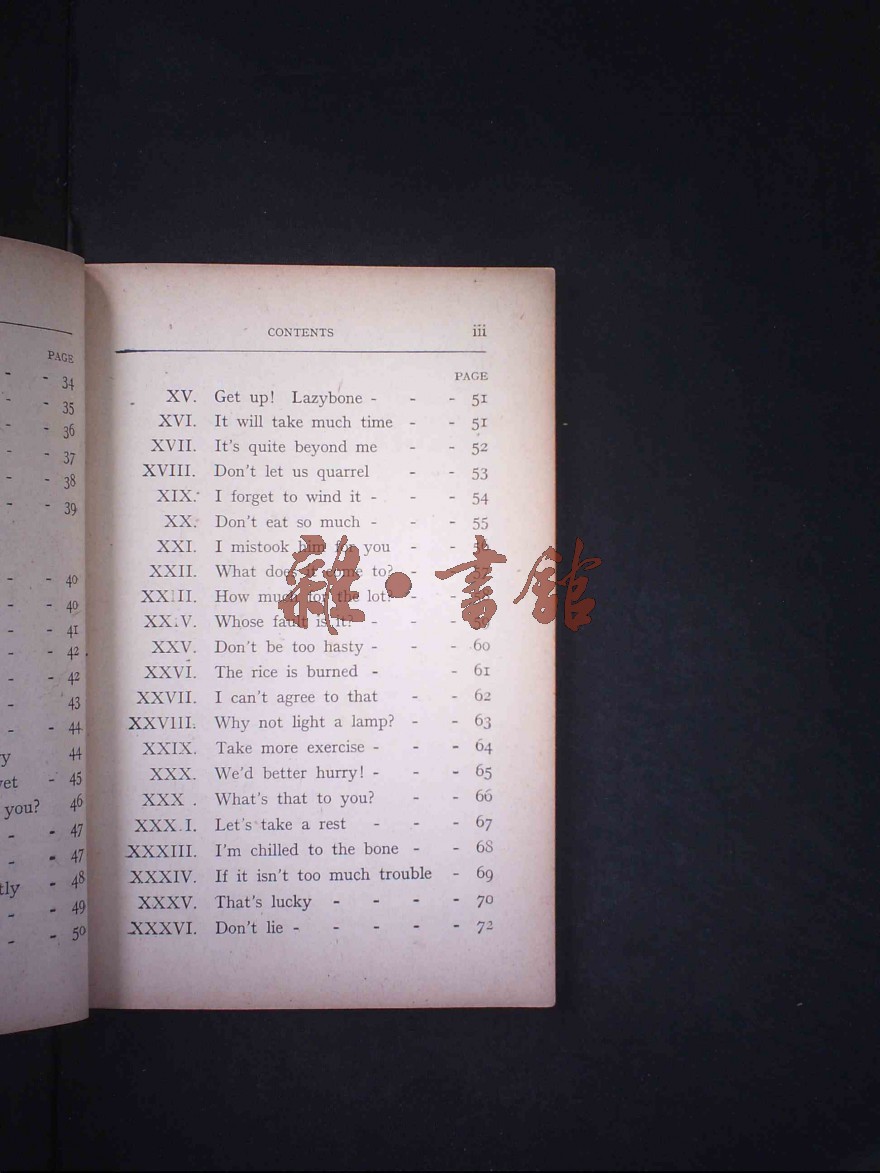 PAGE
- - 34
- - 35
- - 36
- - 37
- - 38
- - 39
- - 40
- - 40
- - 41
- - 42
- - 42
- 43
- - 44
44
- 45
you? 46
- - 47
- - 47
- 48
- - 49
- - 50
CONTENTS iii
PAGE
XV. Get up! Lazybone - - - 51
XVI. It will take much time - - 51
XVII. It's quite beyond me - - 52
XVIII. Don't let us quarrel - - 53
XIX. I forget to wind it - - - 54
XX. Don't eat so much - - - 55
XXI. I mistook him for you - - 56
XXII. What does it come to? - - 57
XXIII. How much for the lot? - - 58
XXIV. Whose fault is it? - - - 59
XXV. Don't be too hasty - - - 60
XXVI. The rice is burned - - 61
XXVII. I can't agree to that - - 62
XXVIII. Why not light a lamp? - - 63
XXIX. Take more exercise - - - 64
XXX. We'd better hurry! - - - 65
XXX . What's that to you? - - 66
XXX I. Let's take a rest - - - 67
XXXIII. I'm chilled to the bone - - 68
XXXIV. If it isn't too much trouble - 69
XXXV. That's lucky - - - - 70
XXXVI. Don't lie - - - - - 72
雜·書館